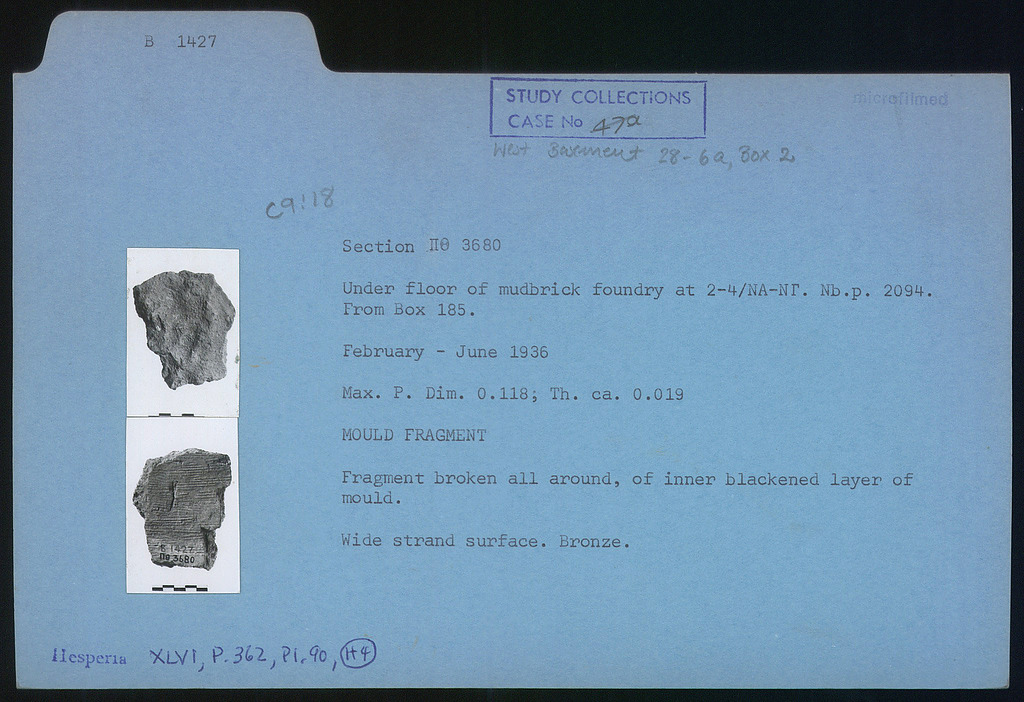 B 1427
STUDY COLLECTIONS
CASE No 47a
microfilmed
West Basement 28-6a, Box 2
C9:18
Section ΠΘ 3680
Under floor of mudbrick foundry at 2-4/NA-NΓ. Nb.p. 2094.
From Box 185.
February - June 1936
Max. P. Dim. 0.118; Th. ca. 0.019
MOULD FRAGMENT
Fragment broken all around, of inner blackened layer of
mould.
Wide strand surface. Bronze.
B 1427
ΠΘ 3680
Hesperia XLVI, P. 362, Pl. 90, H4